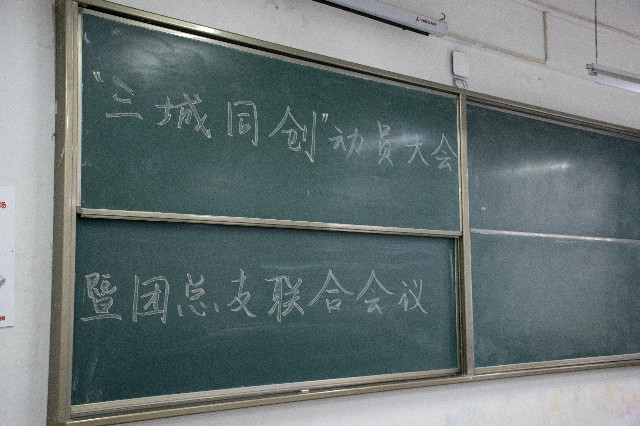 “三城同创”动员大会
暨团总支联合会议